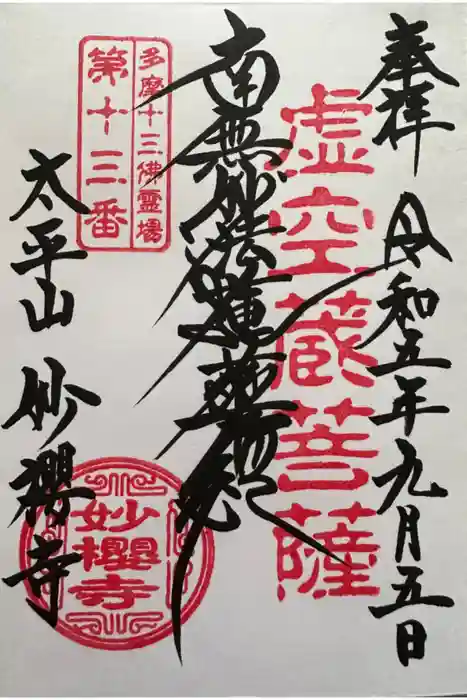 奉拝
令和五年九月五日
虚空蔵菩薩
南無妙法蓮華経
多摩十三佛霊場
第十三番
太平山 妙櫻寺
妙櫻寺